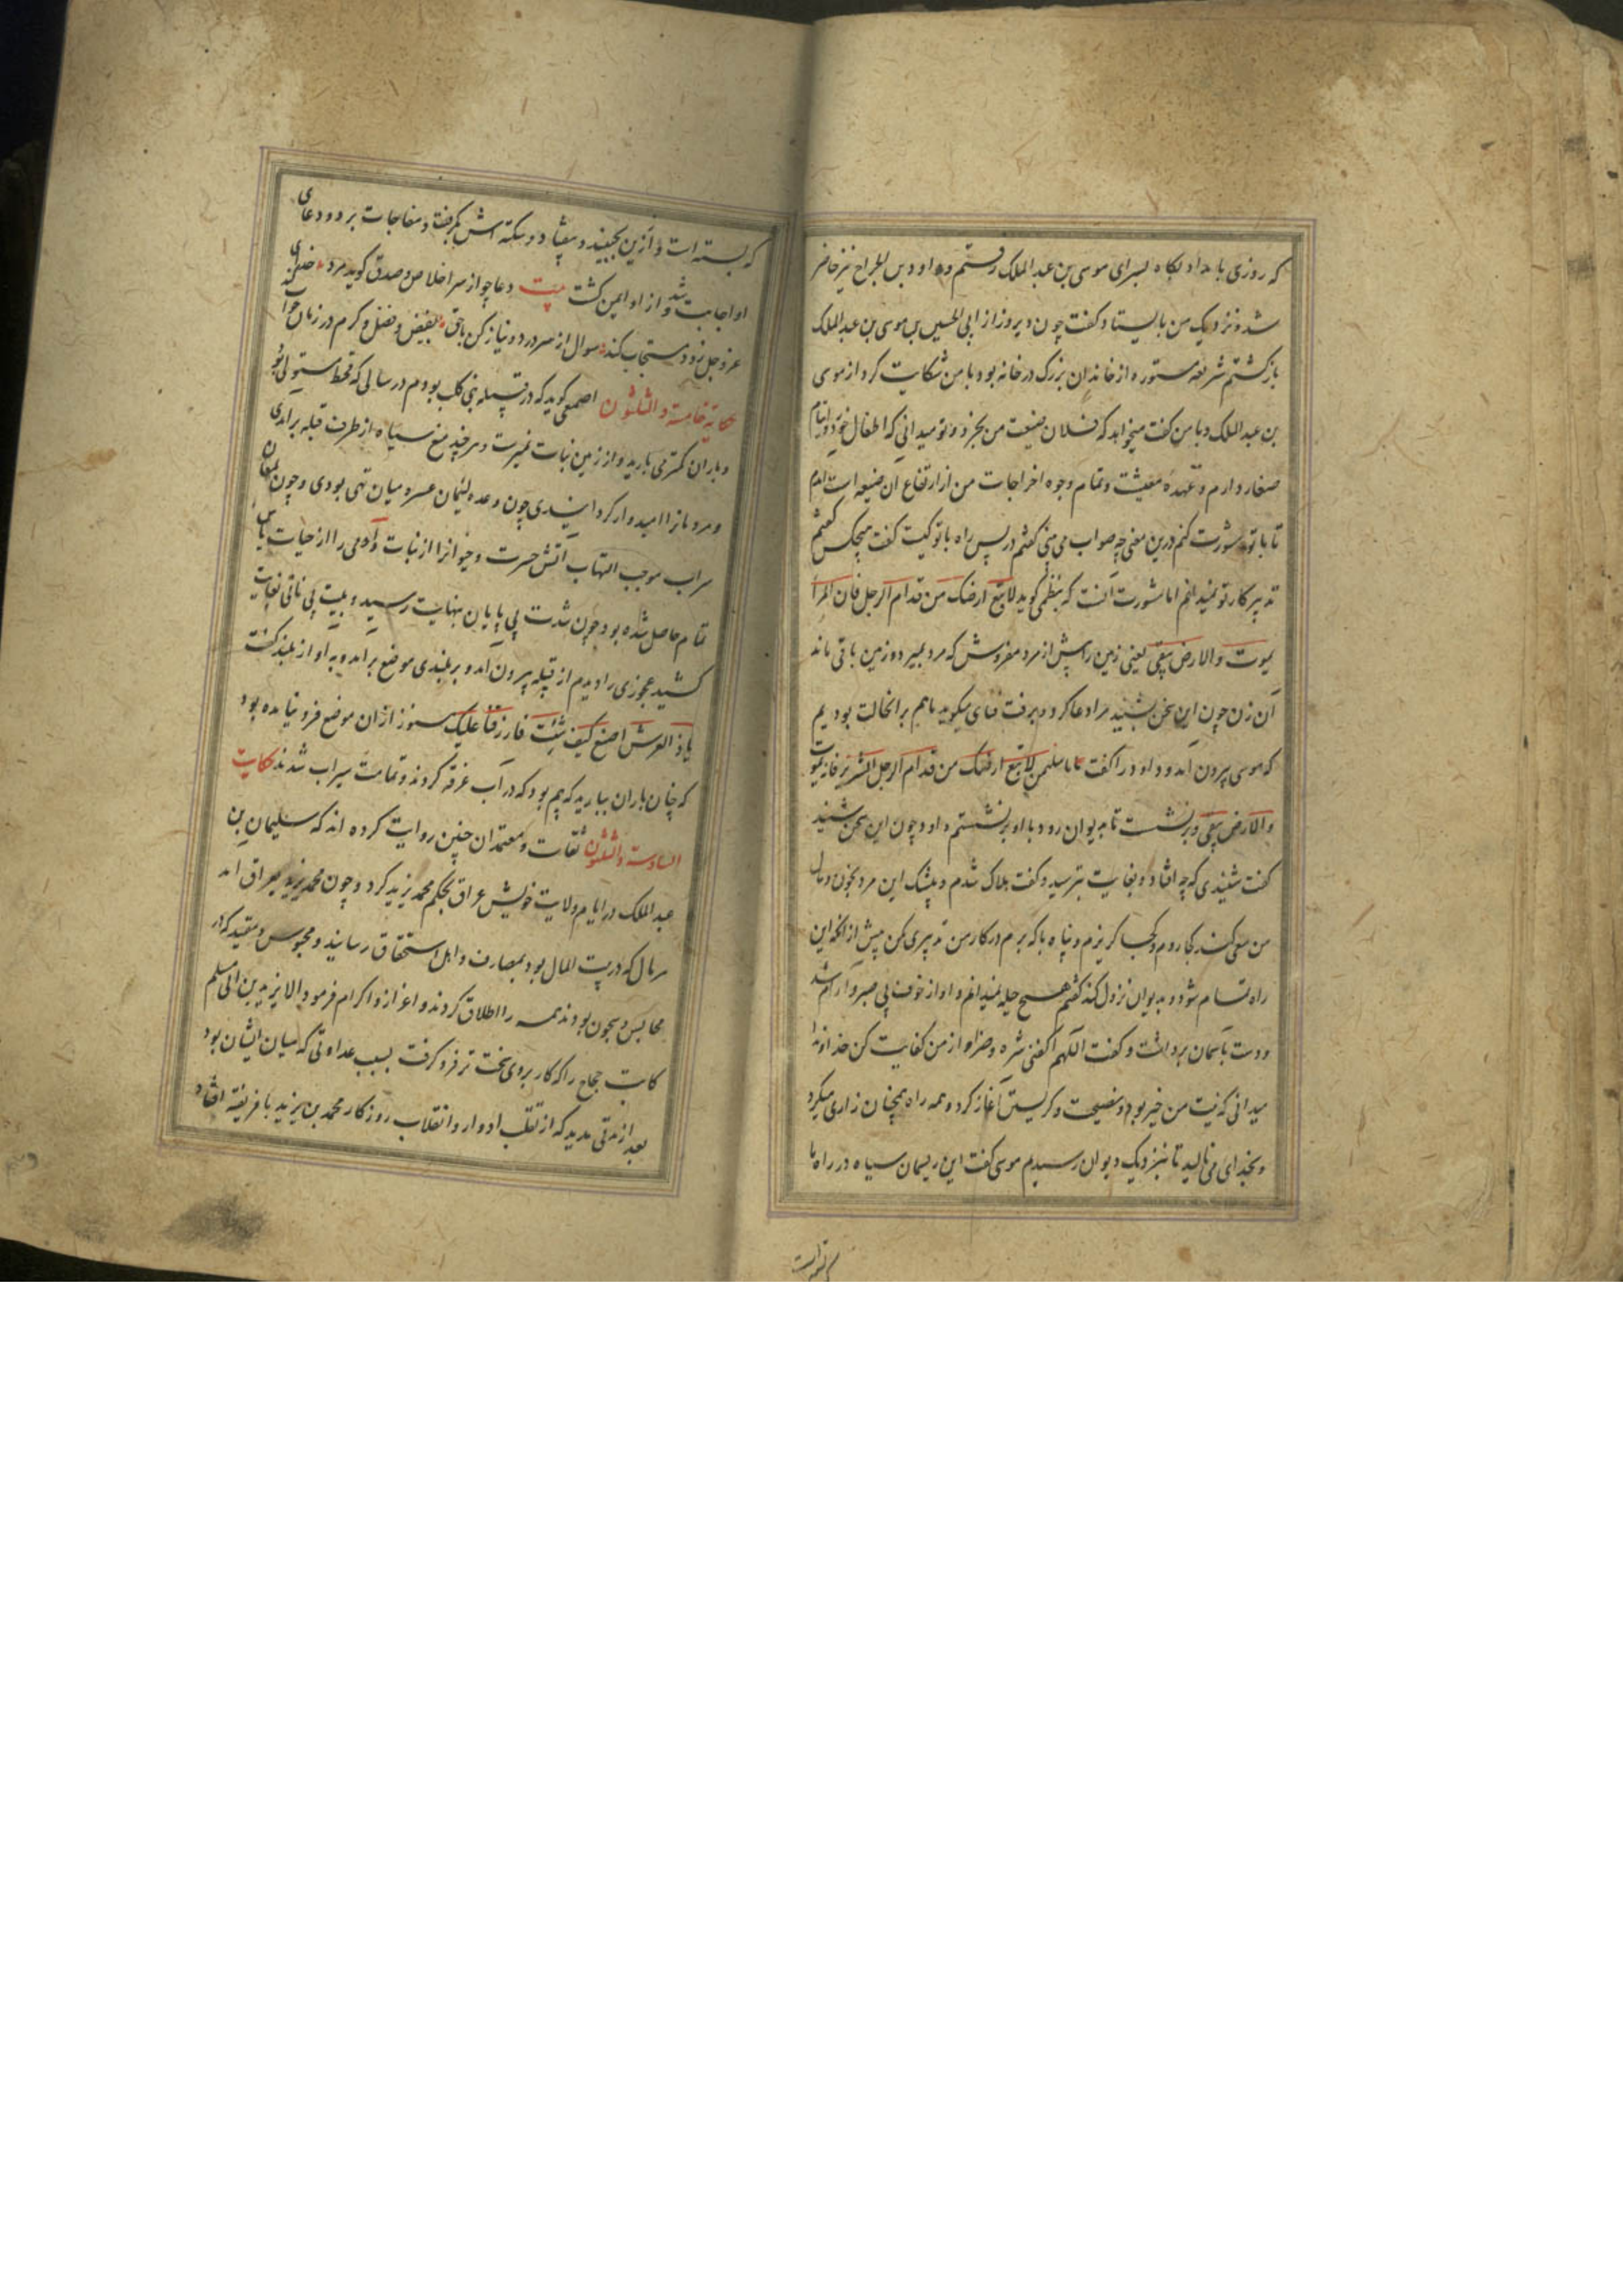 که روزی بامداد پکاه بسرای موسی بن عبد الملک رفتم و داود بن الجراح نیز حاضر
شد و نزدیک من بایستاد و کفت چون دیروز از ابی الحسین بن موسی بن عبد الملک
بازکشتم شریفه مستوره از خاندان بزرک در خانه بود با من شکایت کرد از موسی
بن عبد الملک و با من کفت میخواهد که فلان ضیعت من بخرد و تو میدانی که اطفال خرد و ایتام
صغار دارم و عهده معیشت و تمام وجوه اخراجات من از ارتفاع آن ضیعه است آمدم
تا با تو مشورت کنم درین معنی چه صواب می بینی کفتم در پس راه با تو کیست کفت هیچکس کفتم
تدبیر کار تو نمیدانم اما مشورت آنست که نبطی کوید لا تبع ارضک من قدام الرجل فان المرأ
یموت و الارض یبقی یعنی زمین را پیش از مرد مفروش که مرد بمیرد و زمین باقی ماند
آن زن چون این سخن بشنید مرا دعا کرد و برفت ما هم بر آن حالت بودیم
که موسی بیرون آمد و داود را کفت یا با سلیمن لا تبع ارضک من قدام الرجل الشریر فانه یموت
و الارض یبقی و برنشست تا بدیوان رود با او برنشستم داود چون این سخن بشنید
کفت شنیدی که چه افتاد و بغایت بترسید و کفت هلاک شدم و بیشک این مرد بخون و مال
من سعی کند کجا روم و کجا کریزم و پناه با که برم در کار من تدبیری کن پیش از آنکه این
راه تمام شود و بدیوان نزول کند کفتم هیچ حیله نمیدانم و او از خوف بی صبر و آرام شد
و دست بآسمان برداشت و کفت اللهم اکفنی شره و ضراو از من کفایت کن خداوندا
میدانی که نیت من خیر بود و نصیحت و کریستن آغاز کرد و همه راه همچنان زاری میکرد
و بخدای می نالید تا نزدیک دیوان رسیدم موسی کفت این ریسمان سیاه در راه ما
که بسته است و ازین بجنبید و بیفتاد و سکته اش بکرفت و مفاجات بمرد و دعای
او اجابت شد و از او ایمن کشت بیت دعا چو از سر اخلاص و صدق کوید مرد خدای
عز و جل زود مستجاب کند سوال از سر درد و نیاز کن با حق بفیض و فضل و کرم در زمان جواب کند
حکایة خامسة و الثلثون اصمعی کوید که در قبیله بنی کلب بودم در سالی که قحط مستولی بود
و باران کمتر می بارید و از زمین نبات نمیرست و هر چند میغ سیاه از طرف قبله بر آمدی
و مردمانرا امیدوار کردانیدی چون وعده لئیمان عشره میان تهی بودی و چون لمعان
سراب موجب التهاب آتش حسرت و حیوانرا از نبات و آدمی را از حیات یاس
تمام حاصل شده بود چون شدت بی پایان بنهایت رسید و بلیت بی بغایت
کشید عجوزی را دیدم از قبیله بیرون آمد و بر بلندی موضع برآمد و به آواز بلند کفت
یا ذا العرش اصنع کیف شئت فارزقنا علیک هنوز از آن موضع فرو نیامده بود
که چنان باران ببارید که بیم بود که در آب غرقه کردند و تمامت سیراب شدند حکایت
السادسة و الثلثون ثقات و معتمدان چنین روایت کرده اند که سلیمان بن
عبد الملک در ایام ولایت خویش عراق بحکم محمد یزید کرد و چون محمد یزید بعراق آمد
هر مال که در بیت المال بود بمصارف و اهل استحقاق رسانید و محبوس و مقید که در
محابس و سجون بودند همه را اطلاق کردند و اعزاز و اکرام فرمود الا یزید بن ابی مسلم
کاتب حجاج را که کار بروی سخت تر فرو کرفت بسبب عداوتی که میان ایشان بود
بعد از مدتی مدید که از تقلب ادوار و انقلاب روزکار محمد بن یزید بافریقیه افتاد